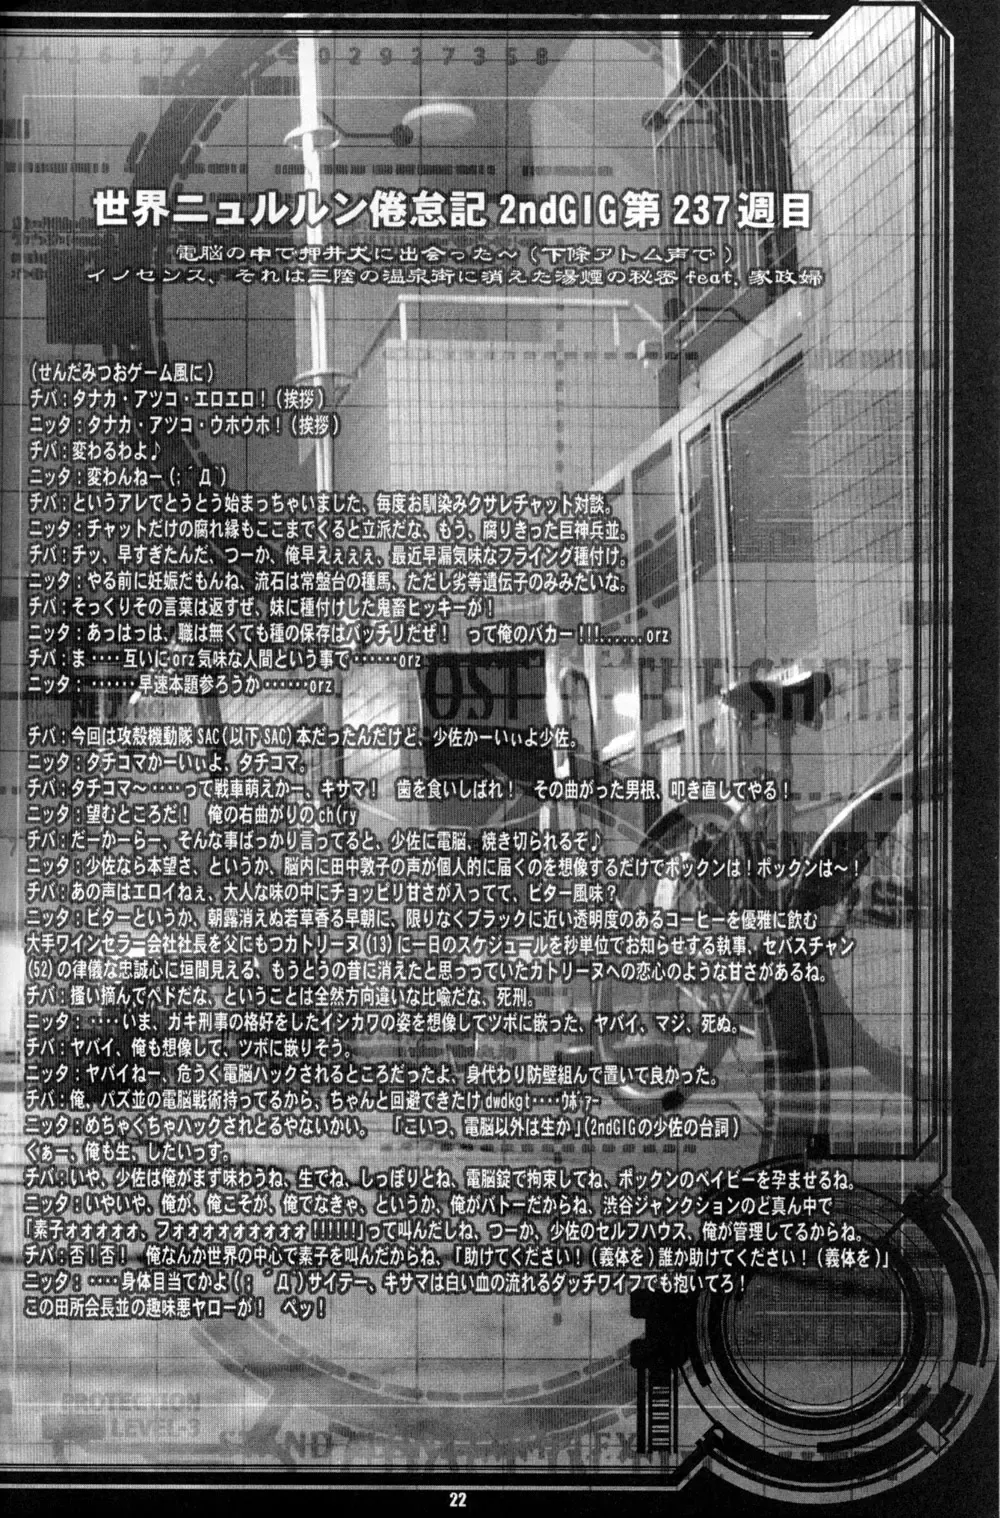 世界ニュルルン倦怠記 2ndGIG第 237週目
電脳の中で押井犬に出会った～(下條アトム声で)
イノセンス、それは三陸の温泉街に消えた湯煙の秘密 feat. 家政婦
(せんだみつおゲーム風に)
チバ:タナカ・アツコ・エロエロ!(挨拶)
ニッタ:タナカ・アツコ・ウホウホ!(挨拶)
チバ:変わるわよ♪
ニッタ:変わんねー(;´Д`)
チバ:というアレでとうとう始まっちゃいました、毎度お馴染みクサレチャット対談。
ニッタ:チャットだけの腐れ縁もここまでくると立派だな、もう、腐りきった巨神兵並。
チバ:チッ、早すぎたんだ、つーか、俺早えぇぇぇ、最近早漏気味なフライング種付け。
ニッタ:やる前に妊娠だもんね、流石は常盤台の種馬、ただし劣等遺伝子のみみたいな。
チバ:そっくりその言葉は返すぜ、妹に種付けした鬼畜ヒッキーが!
ニッタ:あっはっは、職は無くても種の保存はバッチリだぜ! って俺のバカー!!!......orz
チバ:ま‥‥互いにorz気味な人間という事で‥‥‥orz
ニッタ:‥‥‥早速本題参ろうか‥‥‥orz
チバ:今回は攻殻機動隊SAC(以下SAC)本だったんだけど、少佐かーいぃよ少佐。
ニッタ:タチコマかーいぃよ、タチコマ。
チバ:タチコマ～‥‥って戦車萌えかー、キサマ! 歯を食いしばれ! その曲がった男根、叩き直してやる!
ニッタ:望むところだ! 俺の右曲がりのch(ry
チバ:だーかーらー、そんな事ばっかり言ってると、少佐に電脳、焼き切られるぞ♪
ニッタ:少佐なら本望さ、というか、脳内に田中敦子の声が個人的に届くのを想像するだけでボックンは!ボックンは～!
チバ:あの声はエロイねぇ、大人な味の中にチョッピリ甘さが入ってて、ビター風味?
ニッタ:ビターというか、朝露消えぬ若草香る早朝に、限りなくブラックに近い透明度のあるコーヒーを優雅に飲む
大手ワインセラー会社社長を父にもつカトリーヌ(13)に一日のスケジュールを秒単位でお知らせする執事、セバスチャン
(52)の律儀な忠誠心に垣間見える、もうとうの昔に消えたと思っっていたカトリーヌへの恋心のような甘さがあるね。
チバ:掻い摘んでペドだな、ということは全然方向違いな比喩だな、死刑。
ニッタ:‥‥いま、ガキ刑事の格好をしたイシカワの姿を想像してツボに嵌った、ヤバイ、マジ、死ぬ。
チバ:ヤバイ、俺も想像して、ツボに嵌りそう。
ニッタ:ヤバイねー、危うく電脳ハックされるところだったよ、身代わり防壁組んで置いて良かった。
チバ:俺、パズ並の電脳戦術持ってるから、ちゃんと回避できたけdwdkgt‥‥ｳﾎﾞｧｰ
ニッタ:めちゃくちゃハックされとるやないかい。 「こいつ、電脳以外は生か」(2ndGIGの少佐の台詞)
くぁー、俺も生、したいっす。
チバ:いや、少佐は俺がまず味わうね、生でね、しっぽりとね、電脳錠で拘束してね、ボックンのベイビーを孕ませるね。
ニッタ:いやいや、俺が、俺こそが、俺でなきゃ、というか、俺がバトーだからね、渋谷ジャンクションのど真ん中で
「素子ォォォォォ、フォォォォォォォォォ!!!!!!」って叫んだしね、つーか、少佐のセルフハウス、俺が管理してるからね。
チバ:否!否! 俺なんか世界の中心で素子を叫んだからね、「助けてください!(義体を)誰か助けてください!(義体を)」
ニッタ:‥‥身体目当てかよ(;´Д`)サイテー、キサマは白い血の流れるダッチワイフでも抱いてろ!
この田所会長並の趣味悪ヤローが! ペッ!
PROTECTION
LEVEL-3
22